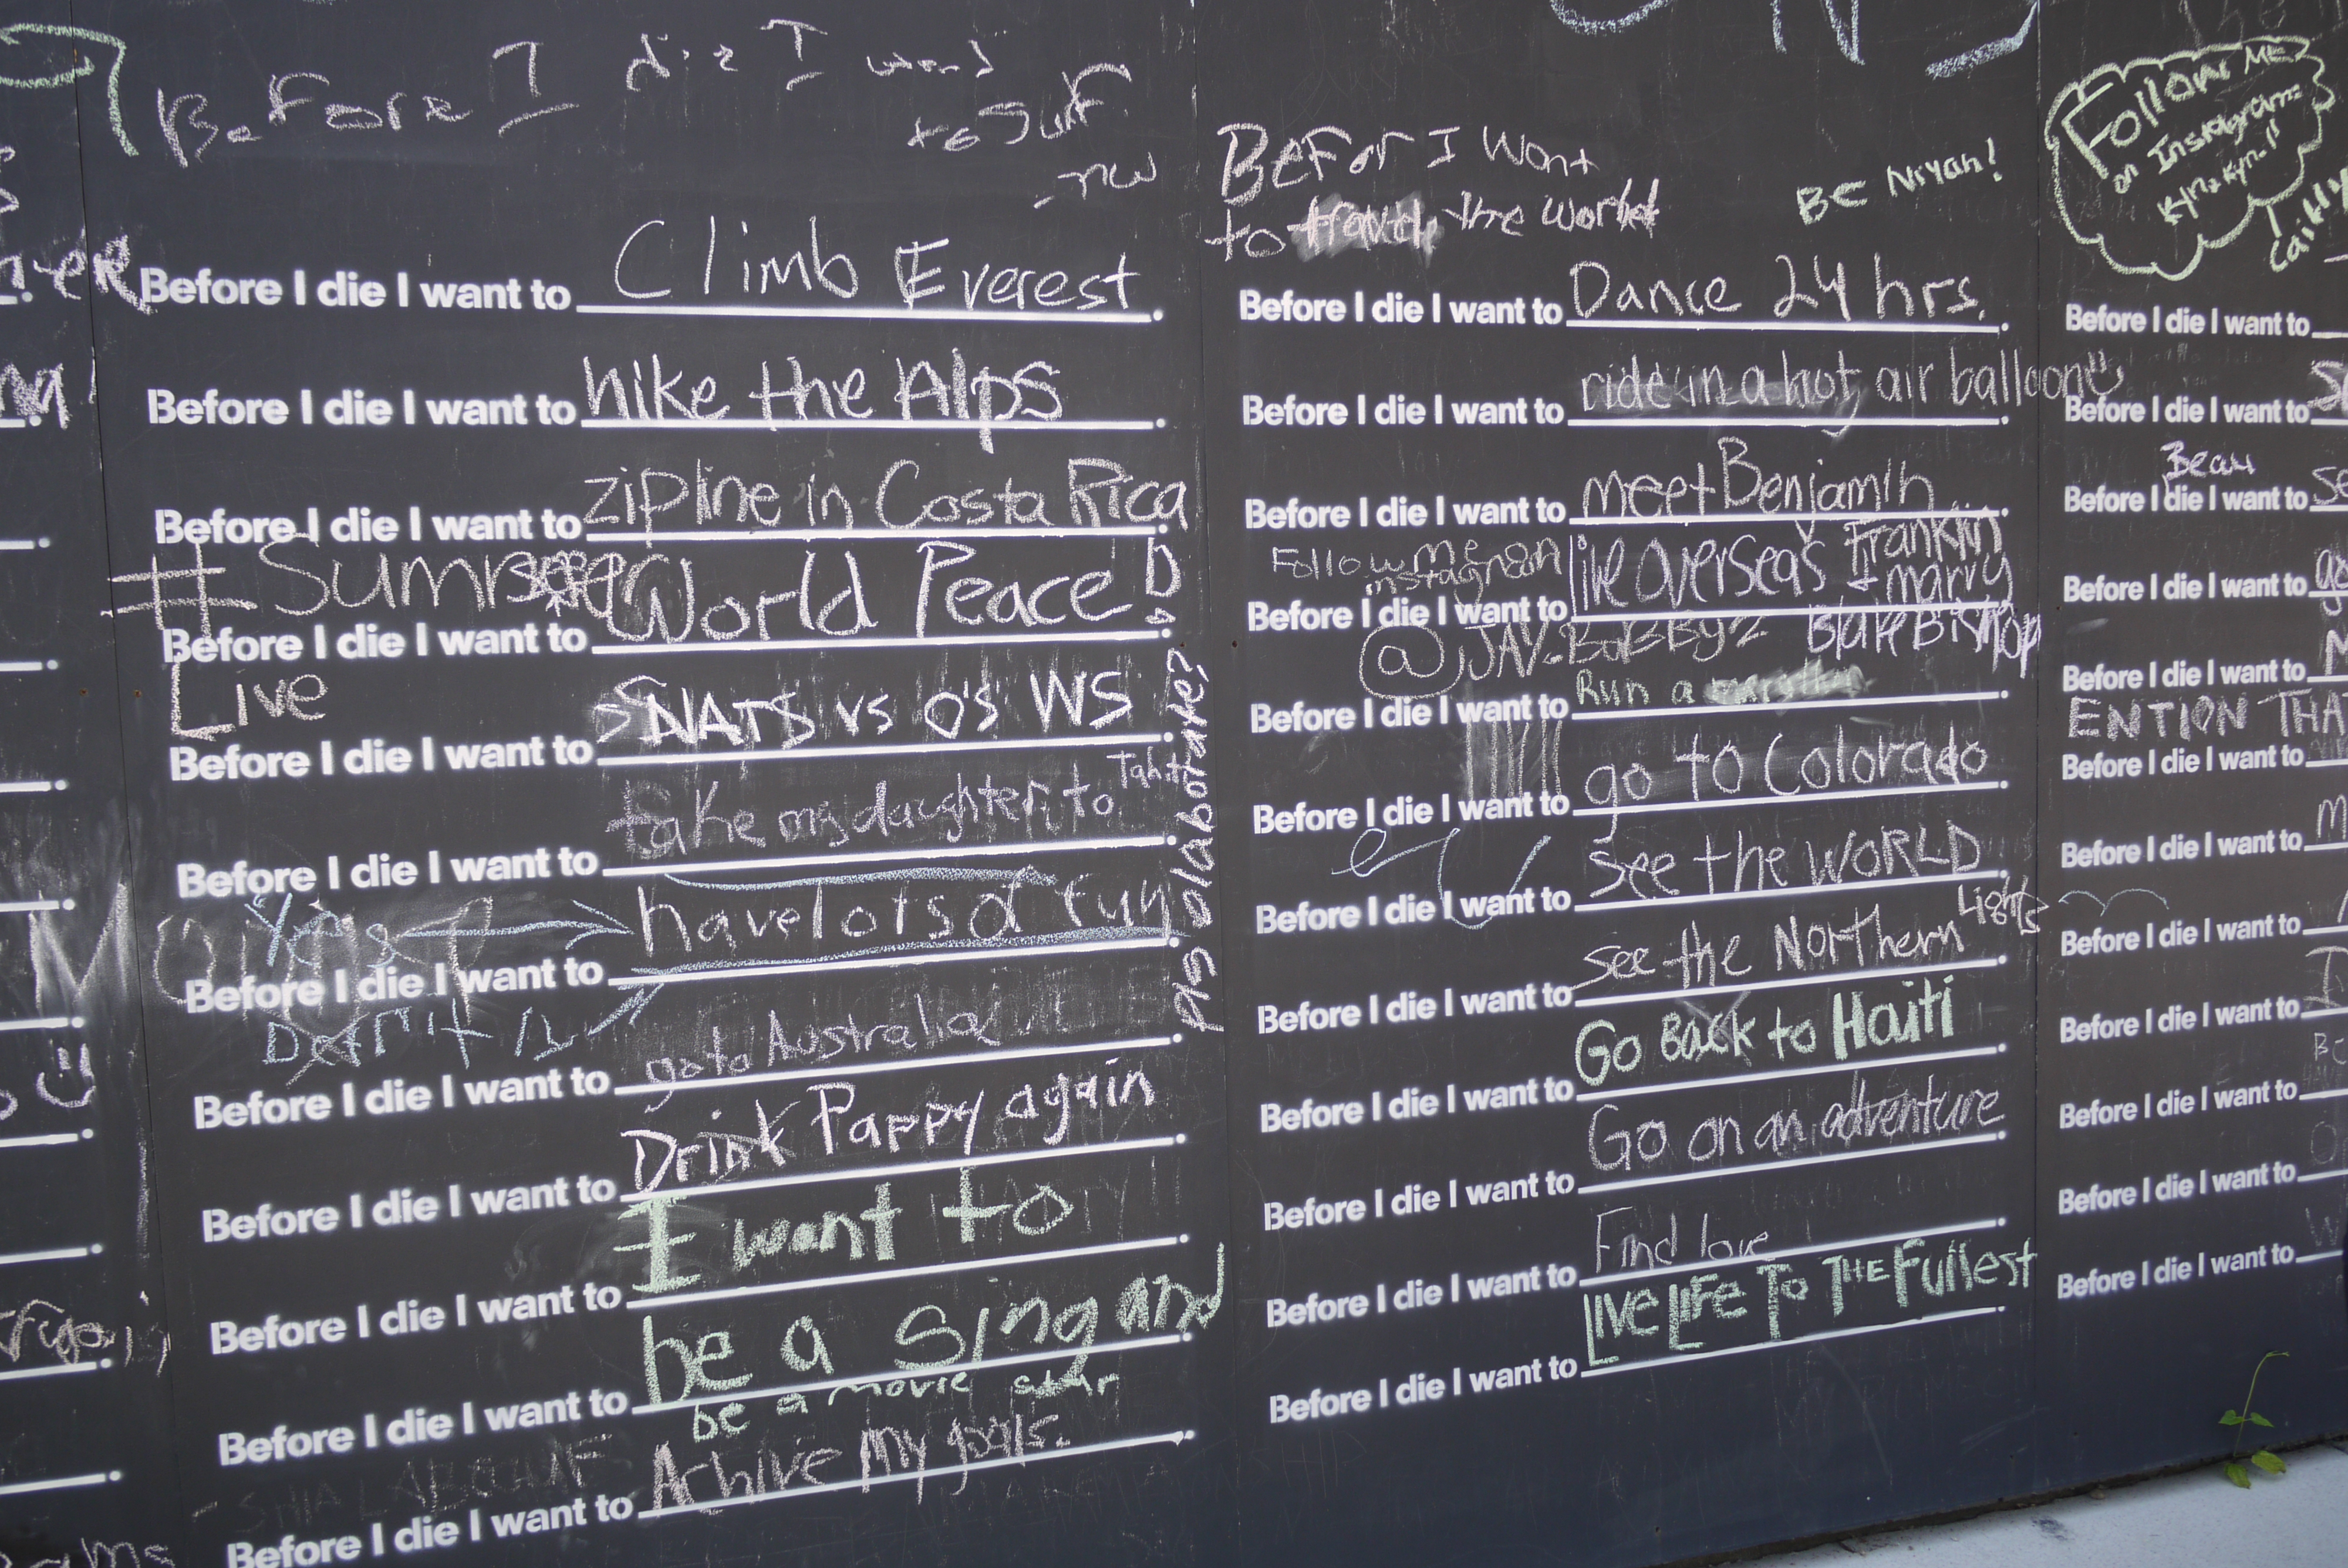 Before I die I want
to Surf
Before I die I want to Climb Everest.
Before I die I want to hike the Alps.
Before I die I want to zipline in Costa Rica.
#Summer
Before I die I want to World Peace!.
Live
Before I die I want to NATS vs O's WS.
Before I die I want to take my daughter to Tahiti.
Yes
Before I die I want to have lots of fun.
Before I die I want to go to Australia.
Before I die I want to Drink Pappy again.
Before I die I want to I want to.
Before I die I want to be a Sing and.
be a movie star
Before I die I want to Achive My goals.
pls elaborate?
Befor I Want
to travel the World
BE NIYAH!
Before I die I want to Dance 24 hrs.
Before I die I want to ride in a hot air balloon.
Before I die I want to meet Benjamin.
Franklin
Follow me on
instagram
Before I die I want to live overseas & marry.
Blake Bishop
Before I die I want to Run a.
Before I die I want to go to Colorado.
Before I die I want to see the WORLD.
Before I die I want to see the Northern Lights.
Before I die I want to Go Back to Haiti.
Before I die I want to Go on an adventure.
Before I die I want to Find love.
Before I die I want to LIVE LIFE TO THE Fullest.
Follow ME
on Instagram
Before I die I want to
Before I die I want to
Beau
Before I die I want to
Before I die I want to
Before I die I want to
ENTION THA
Before I die I want to
Before I die I want to
Before I die I want to
Before I die I want to
Before I die I want to
Before I die I want to
Before I die I want to